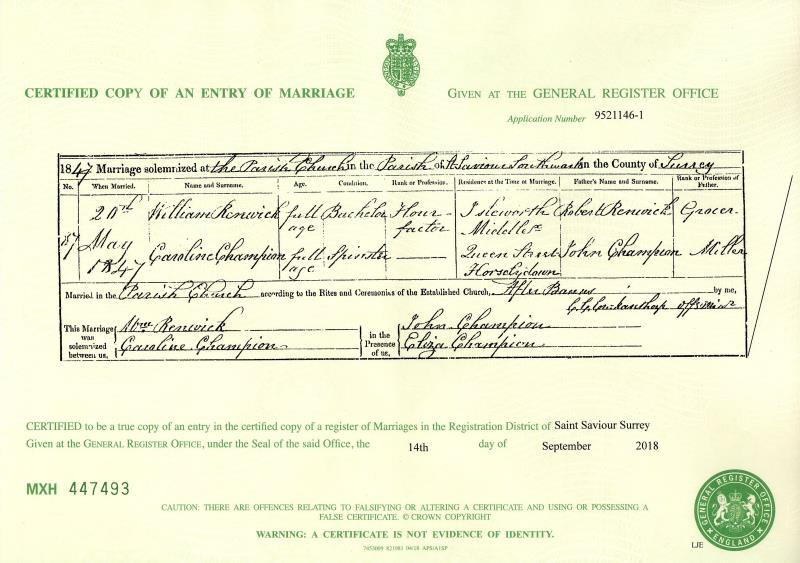 CERTIFIED COPY OF AN ENTRY OF MARRIAGE
GIVEN AT THE GENERAL REGISTER OFFICE
Application Number 9521146-1
1847 Marriage solemnized at the Parish Church in the Parish of St Saviour Southwark in the County of Surrey
No. When Married. Name and Surname. Age. Condition. Rank or Profession. Residence at the Time of Marriage. Father's Name and Surname. Rank or Profession of Father.
2nd William Renwick full age Bachelor Flour factor Isleworth Middlesx Robert Renwick Grocer
87 May
1847 Caroline Champion full age Spinster Queen Street Horselydown John Champion Miller
Married in the Parish Church according to the Rites and Ceremonies of the Established Church, After Banns by me,
This Marriage was solemnized between us, Wm Renwick Caroline Champion in the Presence of us, John Champion Eliza Champion
CERTIFIED to be a true copy of an entry in the certified copy of a register of Marriages in the Registration District of Saint Saviour Surrey
Given at the GENERAL REGISTER OFFICE, under the Seal of the said Office, the 14th day of September 2018
MXH 447493
CAUTION: THERE ARE OFFENCES RELATING TO FALSIFYING OR ALTERING A CERTIFICATE AND USING OR POSSESSING A
FALSE CERTIFICATE. © CROWN COPYRIGHT
WARNING: A CERTIFICATE IS NOT EVIDENCE OF IDENTITY.
GENERAL REGISTER OFFICE
ENGLAND
LJE